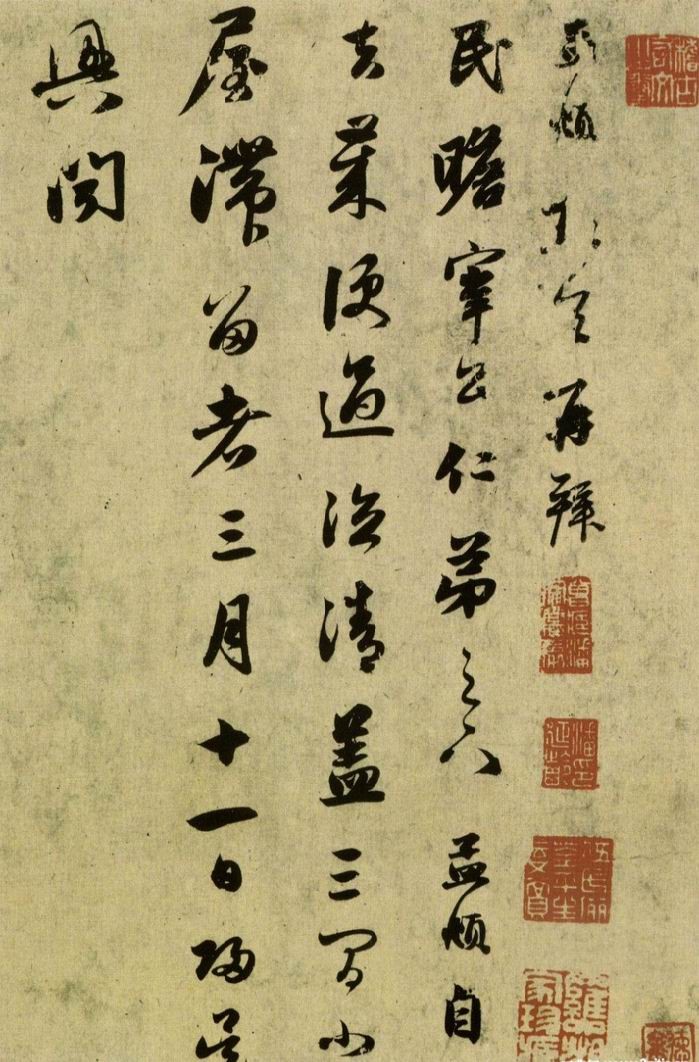 孟頫頓首再拜
民瞻宰公仁弟足下 孟頫自
去歲便過德清蓋三間小
屋滯留者三月十一日歸吳
興聞